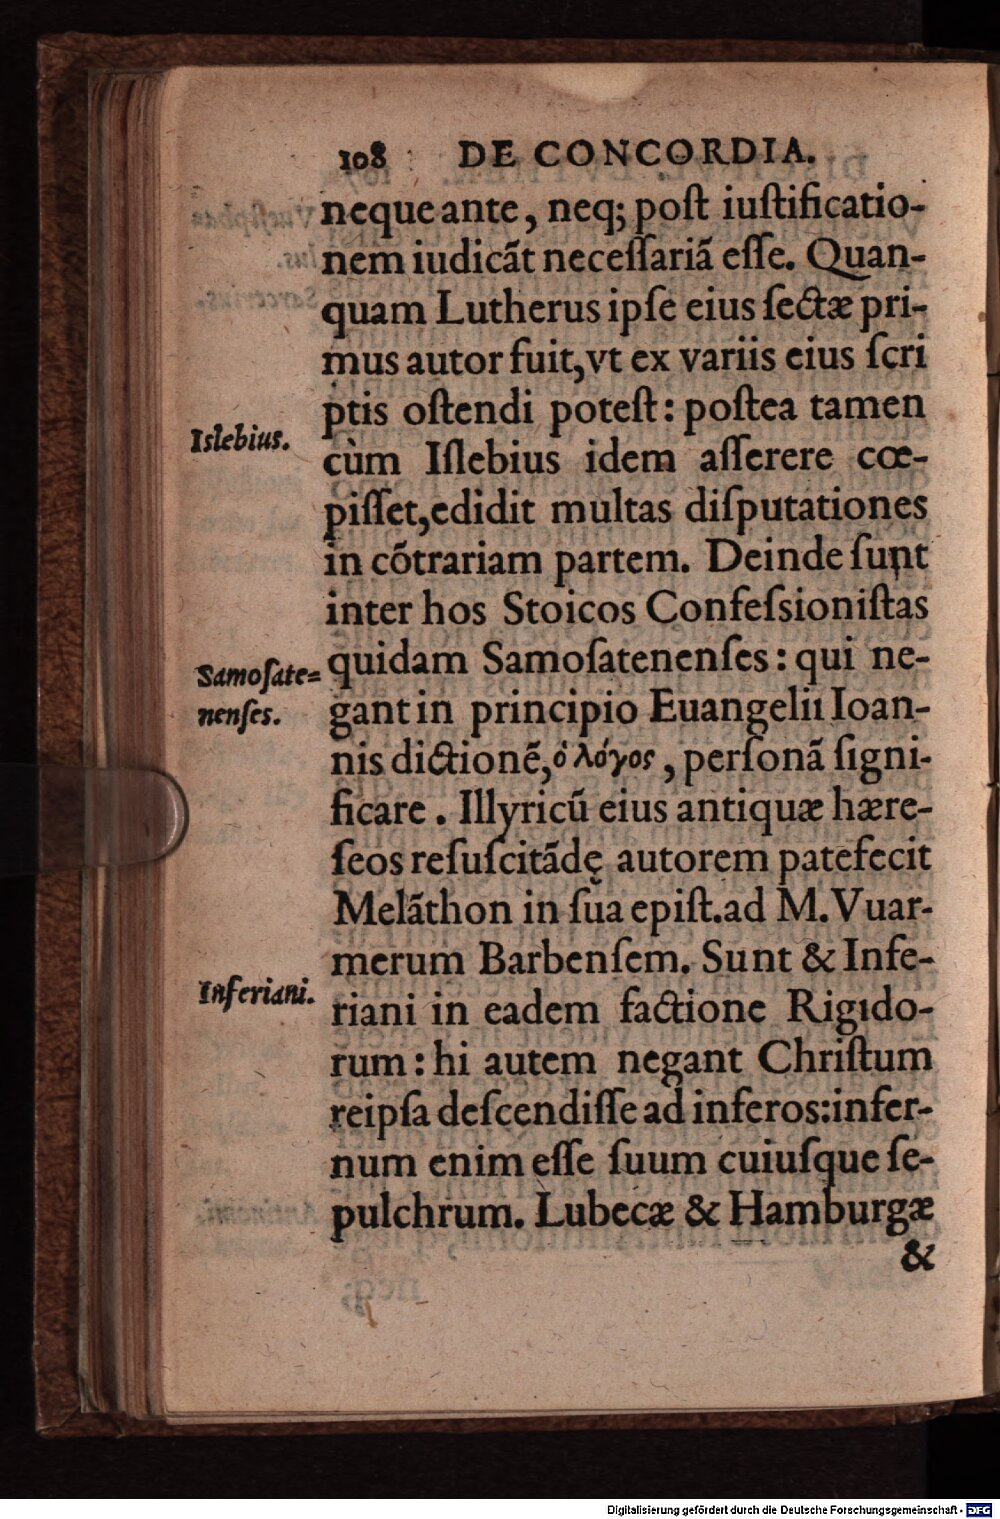 108 DE CONCORDIA.
neque ante, neq; poſt iuſtificatio-
nem iudicãt neceſſariã eſſe. Quan-
quam Lutherus ipſe eius ſectæ pri-
mus autor fuit, vt ex variis eius ſcri
ptis oſtendi poteſt: poſtea tamen
Islebius.
cùm Iſlebius idem aſſerere cœ-
piſſet, edidit multas diſputationes
in cõtrariam partem. Deinde ſunt
inter hos Stoicos Confeſsioniſtas
Samoſate=
nenſes.
quidam Samoſatenenſes: qui ne-
gant in principio Euangelii Ioan-
nis dictionẽ, ὁ λόγος, perſonã ſigni-
ficare. Illyricũ eius antiquæ hære-
ſeos reſuſcitãdę autorem patefecit
Melãthon in ſua epiſt. ad M. Vuar-
merum Barbenſem. Sunt & Infe-
Inferiani.
riani in eadem factione Rigido-
rum: hi autem negant Chriſtum
reipſa deſcendiſſe ad inferos: infer-
num enim eſſe ſuum cuiuſque ſe-
pulchrum. Lubecæ & Hamburgæ
&
Digitalisierung gefördert durch die Deutsche Forschungsgemeinschaft - DFG